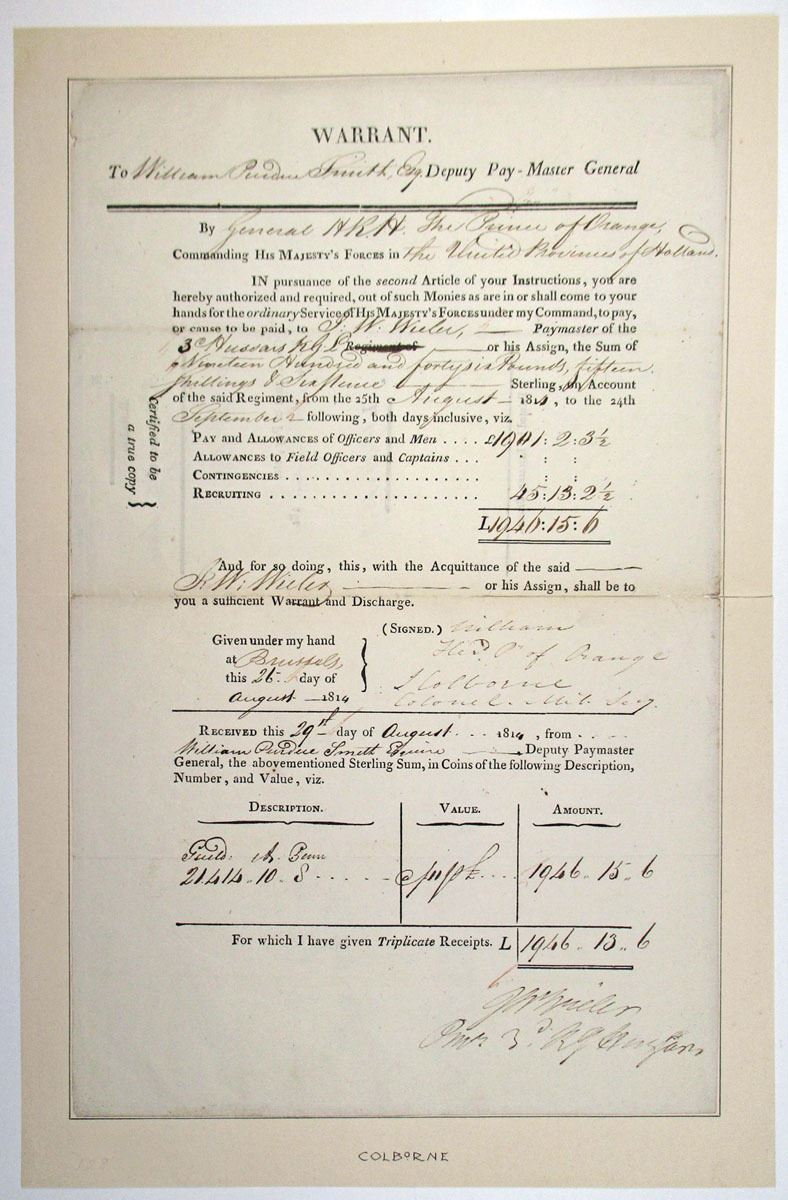 WARRANT.
To William Purdue Smith, Esq. Deputy Pay-Master General
By General H.R.H. The Prince of Orange,
Commanding His Majesty's Forces in the United Provinces of Holland.
IN pursuance of the second Article of your Instructions, you are
hereby authorized and required, out of such Monies as are in or shall come to your
hands for the ordinary Service of His Majesty's Forces under my Command, to pay,
or cause to be paid, to J. W. Wieler, Paymaster of the
3d Hussars K G L Regiment of or his Assign, the Sum of
Nineteen Hundred and forty six Pounds, fifteen
Shillings & Sixpence Sterling, on Account
of the said Regiment, from the 25th August 1814, to the 24th
September following, both days inclusive, viz.
Certified to be
a true copy }
Pay and Allowances of Officers and Men .... £1901:2:3½
Allowances to Field Officers and Captains ... : :
Contingencies ................ : :
Recruiting .................. 45:13:2½
L1946:15:6
And for so doing, this, with the Acquittance of the said
J. W. Wieler or his Assign, shall be to
you a sufficient Warrant and Discharge.
(Signed.) William
Hed. Pr. of Orange
Given under my hand
at Brussels,
this 26 day of
August 1814
J Colborne
Colonel. Mil. Secy.
Received this 29th day of August... 1814, from ....
William Purdue Smith Esquire Deputy Paymaster
General, the abovementioned Sterling Sum, in Coins of the following Description,
Number, and Value, viz.
Description. Value. Amount.
Guild. St. Penn
21414..10..8 ..... 1946..15..6
For which I have given Triplicate Receipts. L 1946..13..6
JW Wieler
Pmr. 3d. KG Hussars
COLBORNE